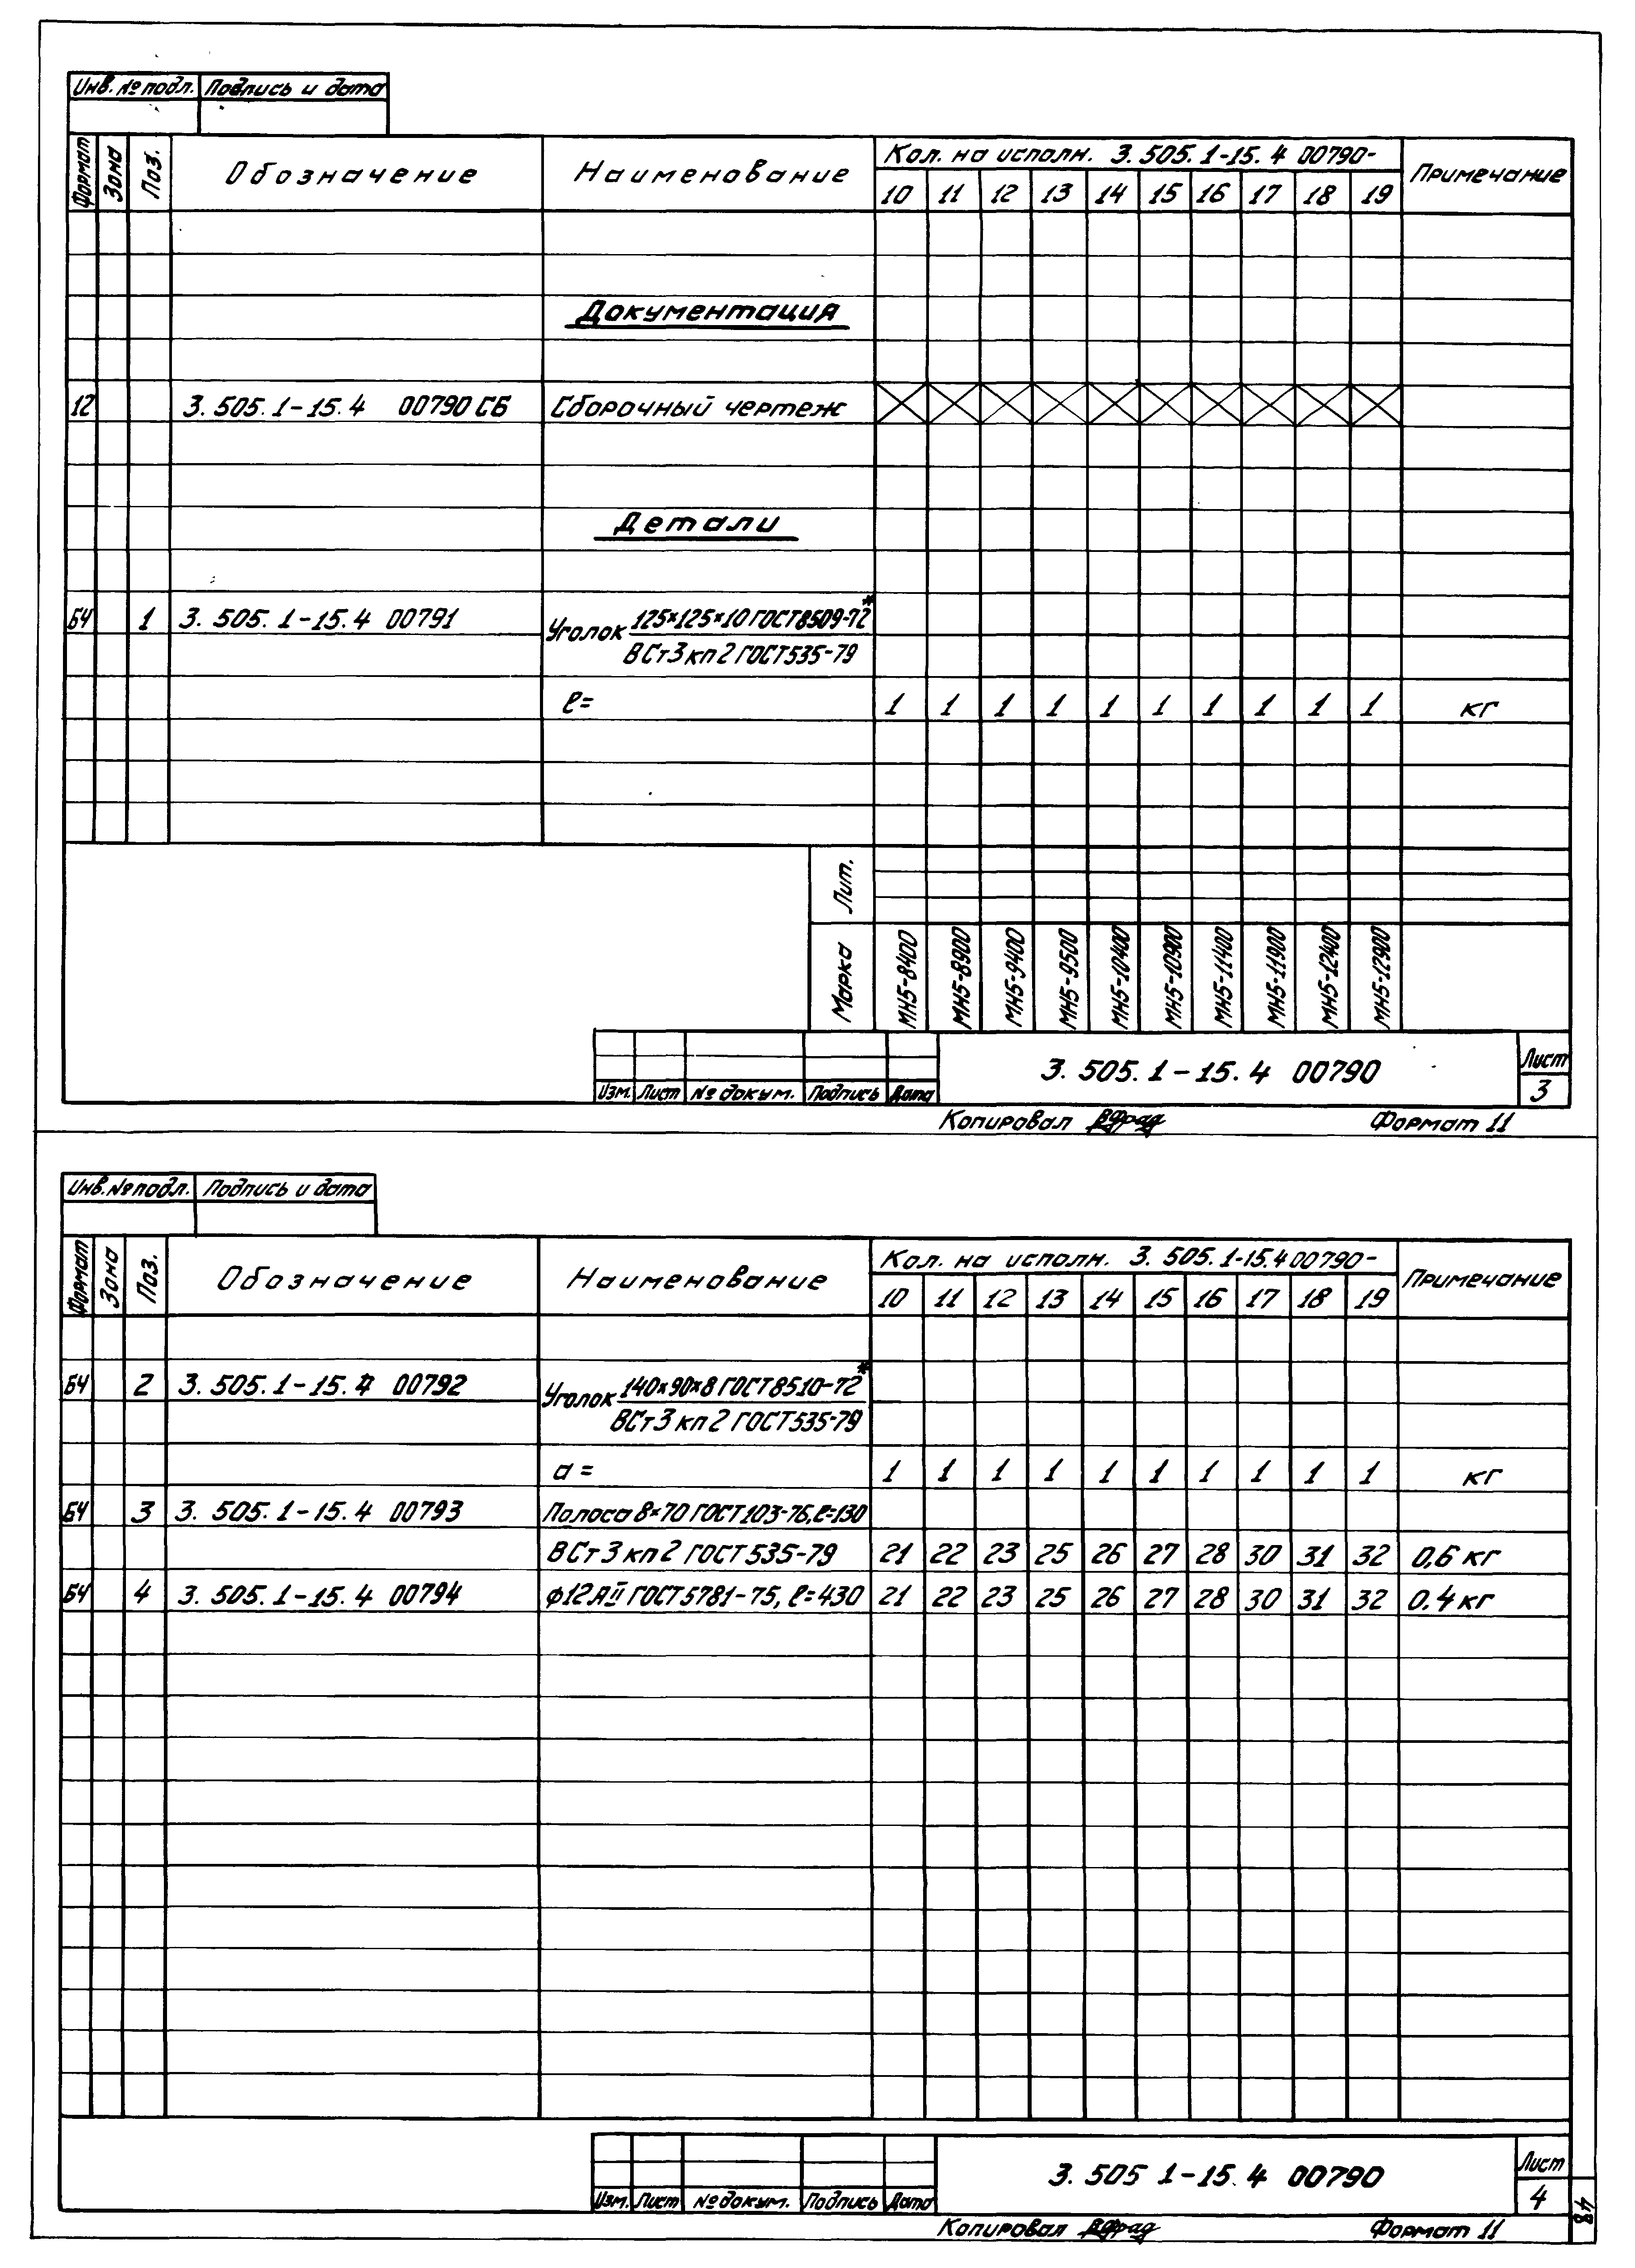 Инв. № подл. Подпись и дата
Формат Зона Поз. Обозначение Наименование Кол. на исполн. 3.505.1-15.4 00790- Примечание
10 11 12 13 14 15 16 17 18 19
Документация
12 3.505.1-15.4 00790 СБ Сборочный чертеж
Детали
БЧ 1 3.505.1-15.4 00791 Уголок 125×125×10 ГОСТ 8509-72*
ВСт3кп2 ГОСТ 535-79
ℓ= 1 1 1 1 1 1 1 1 1 1 кг
Лит.
Марка МН5-8400 МН5-8900 МН5-9400 МН5-9500 МН5-10400 МН5-10900 МН5-11400 МН5-11900 МН5-12400 МН5-12900
3.505.1-15.4 00790 Лист
Изм. Лист № докум. Подпись Дата 3
Копировал Формат 11
Инв. № подл. Подпись и дата
Формат Зона Поз. Обозначение Наименование Кол. на исполн. 3.505.1-15.4 00790- Примечание
10 11 12 13 14 15 16 17 18 19
БЧ 2 3.505.1-15.4 00792 Уголок 140×90×8 ГОСТ 8510-72*
ВСт3кп2 ГОСТ 535-79
a= 1 1 1 1 1 1 1 1 1 1 кг
БЧ 3 3.505.1-15.4 00793 Полоса 8×70 ГОСТ 103-76, ℓ=130
ВСт3кп2 ГОСТ 535-79 21 22 23 25 26 27 28 30 31 32 0,6 кг
БЧ 4 3.505.1-15.4 00794 ф12АII ГОСТ 5781-75, ℓ=430 21 22 23 25 26 27 28 30 31 32 0.4 кг
3.505 1-15.4 00790 Лист
Изм. Лист № докум. Подпись Дата 4
Копировал Формат 11
48